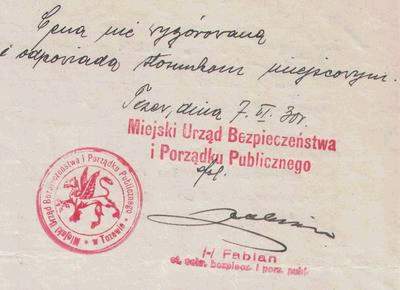 Cena nie wygórowaną
i odpowiada stosunkom miejscowym.
Tczew, dnia 7. VI. 30r.
Miejski Urząd Bezpieczeństwa
i Porządku Publicznego
Miejski Urząd Bezpieczeństwa i Porządku Publicznego
* w Tczewie *
/-/ Fabian
st. sekr. bezpiecz. i porz. publ.